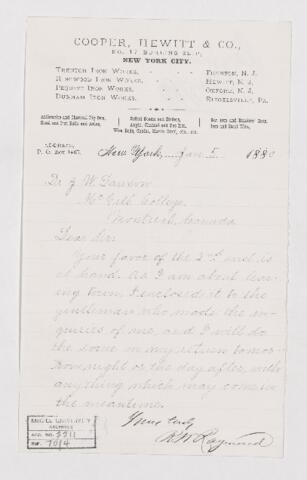 COOPER, HEWITT & CO.,
NO. 17 BURLING SLIP,
NEW YORK CITY.
TRENTON IRON WORKS, TRENTON, N. J.
RINGWOOD IRON WORKS, HEWITT, N. J.
PEQUEST IRON WORKS, OXFORD, N. J.
DURHAM IRON WORKS, RIEGELSVILLE, PA.
ADDRESS,
P. O. Box
New York, Jan 5 1880
Dr J. W. Dawson
McGill College
Montreal, Canada
Dear Sir:
Your favor of the 2nd inst. is
at hand. As I am about leav-
ing town, I enclosed it to the
gentleman who made the in-
quiries of me, and I will do
the same on my return tomor-
row night or the day after, with
anything which may come in
the meantime.
Yours truly
R. W. Raymond
McGILL UNIVERSITY
ARCHIVES
ACC. NO. 2211
REF. 7014